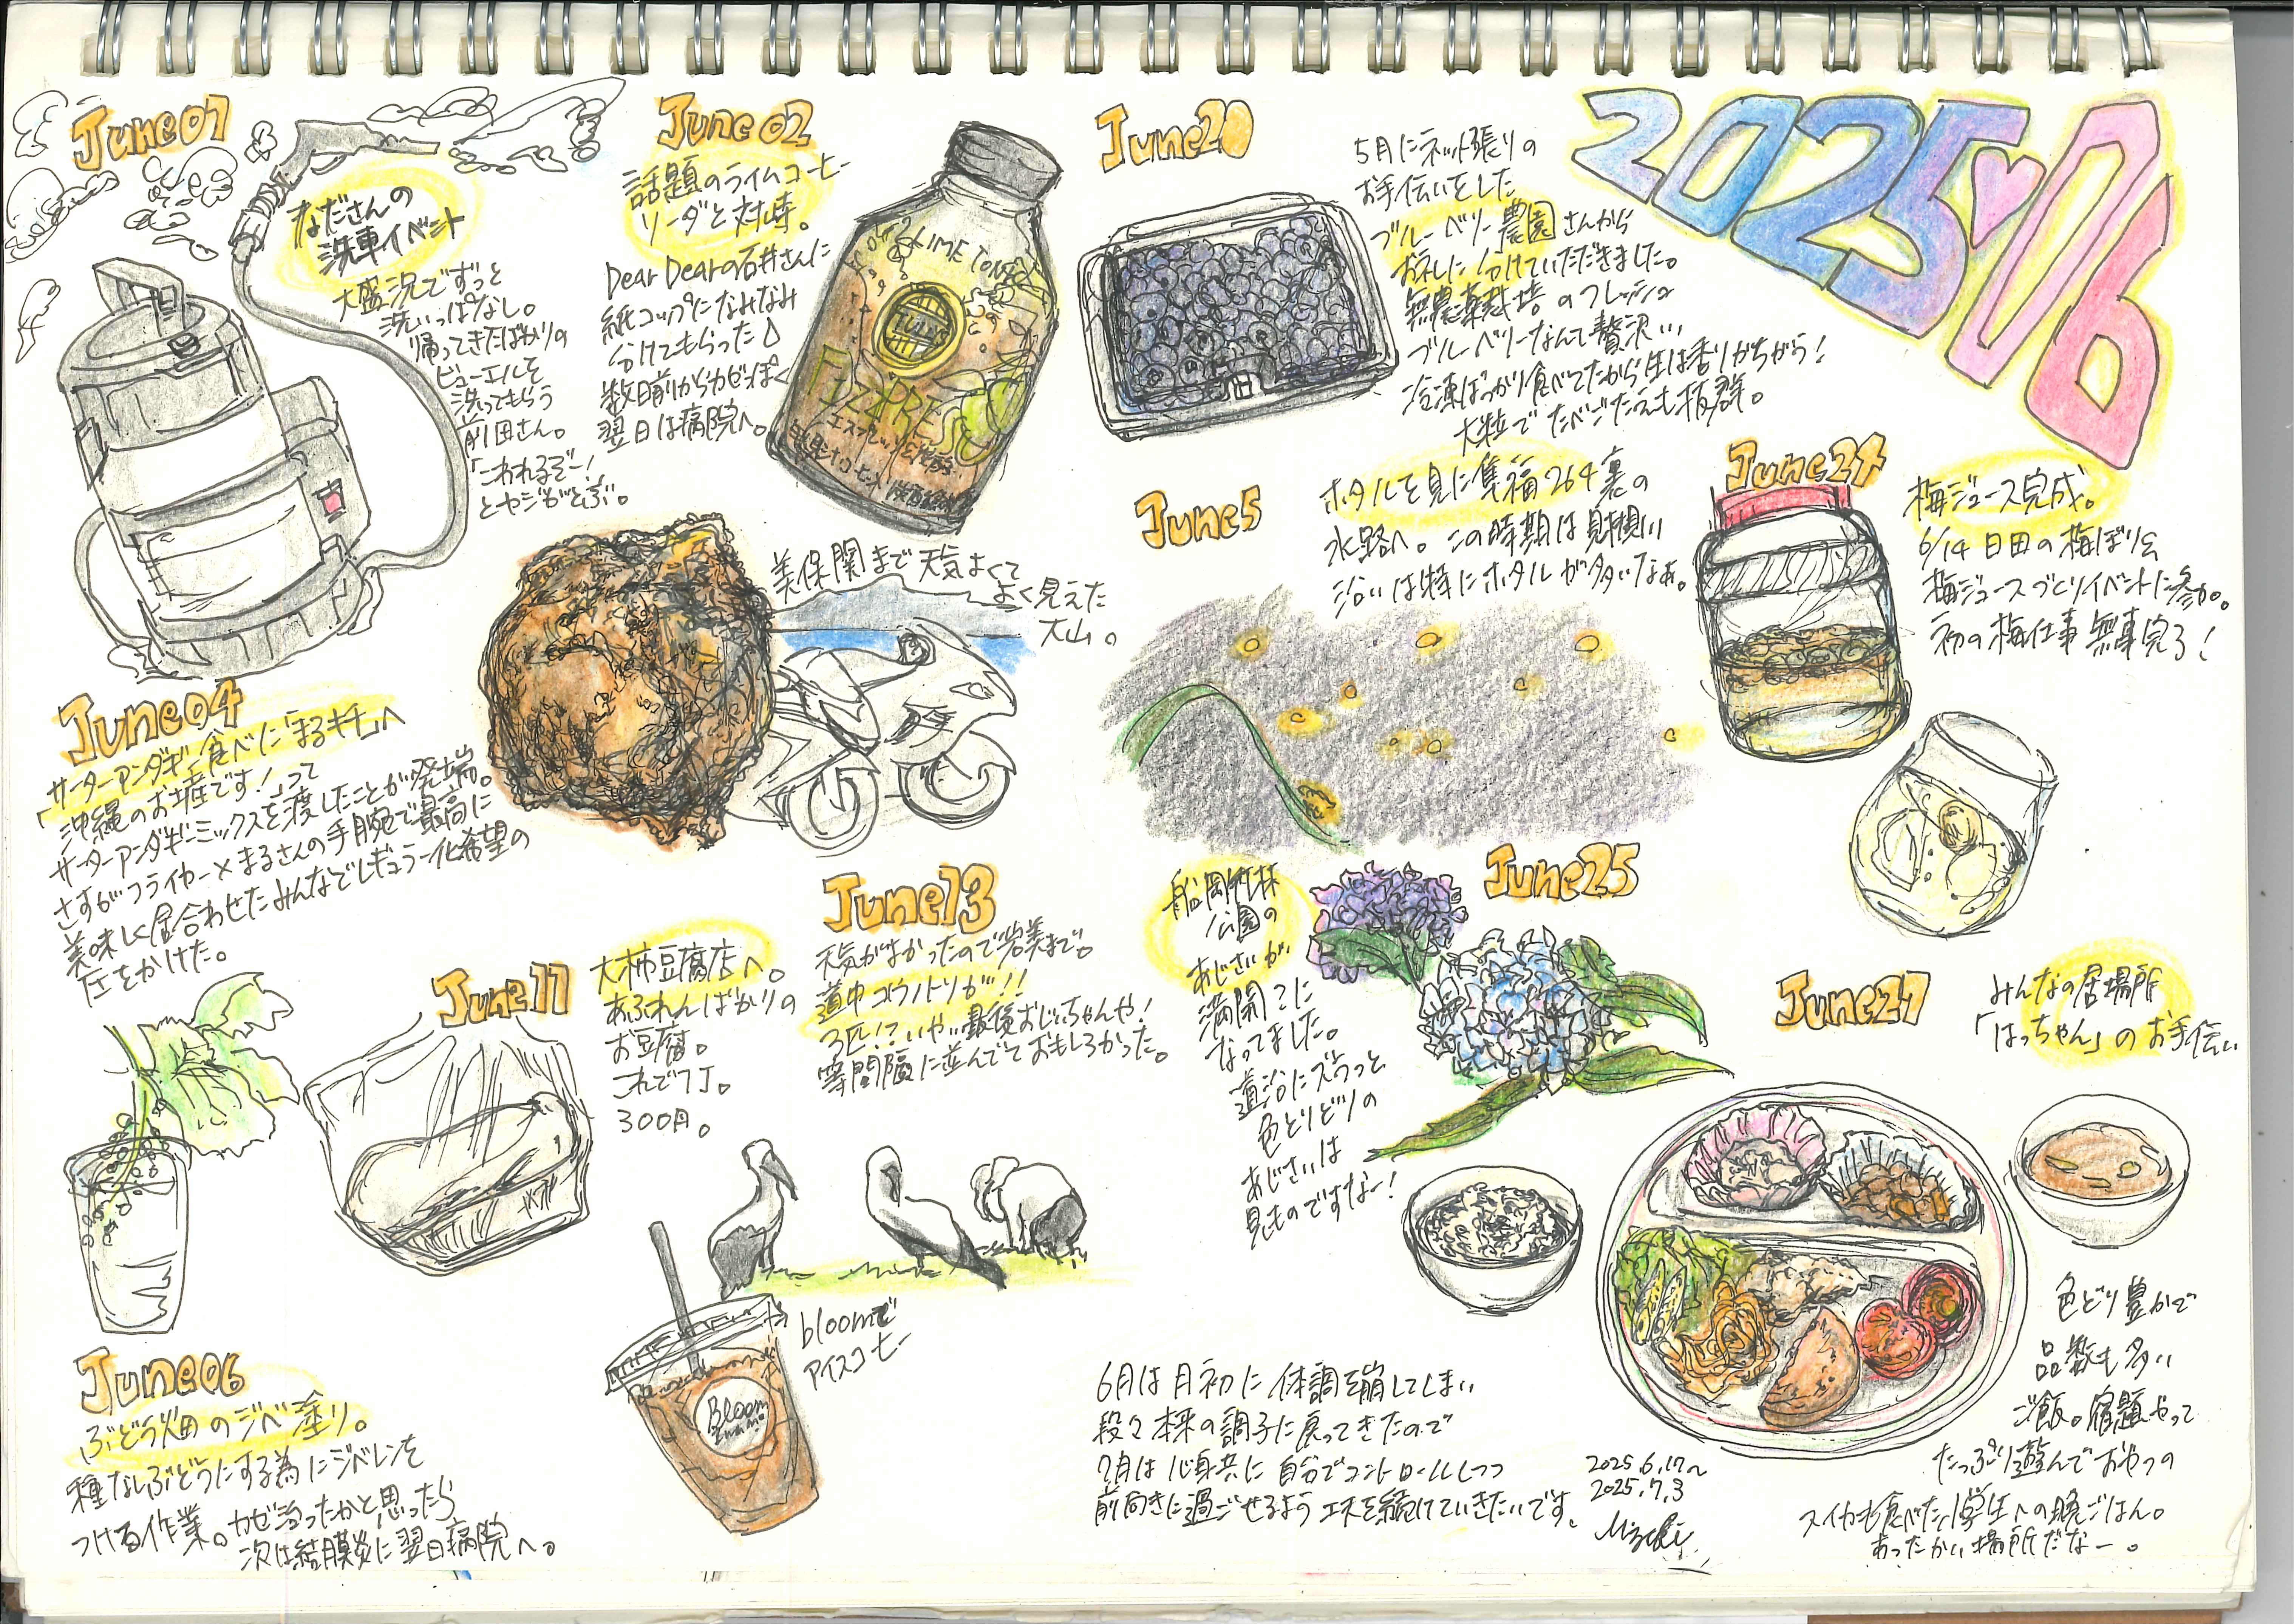 2025♡06
June01
なださんの
洗車イベント
大盛況でずっと
洗いっぱなし。
帰ってきたばかりの
ビューエルを
洗ってもらう
前田さん。
「こわれるぞー!
とヤジがとぶ。
June02
話題のライムコーヒー
ソーダと対峙。
Dear Dearの石井さんに
紙コップになみなみ
分けてもらった
数日前からカゼっぽく
翌日は病院へ。
LIME TONIC
TULLY'S
FIZZPRESSO
June04
サーターアンダギー食べに「まるキチ」へ
「沖縄のお土産です!」って
サーターアンダギーミックスを渡したことが発端。
さすがフライヤー×まるさんの手腕で最高に
美味しく居合わせたみんなでレギュラー化希望の
圧をかけた。
美保関まで天気よくて
よく見えた
大山。
June5
ホタルを見に隼福264裏の
水路へ。この時期は見槻川
沿いは特にホタルが多いなぁ。
June06
ぶどう畑のジベ塗り。
種なしぶどうにする為にジベレンを
つける作業。カゼ治ったかと思ったら
次は結膜炎に翌日病院へ。
June11
大柿豆腐店へ。
あふれんばかりの
お豆腐。
これで1丁。
300円。
June13
天気がよかったので岩美まで。
道中コウノトリが!!
3匹!?いや、最後おじいちゃんや!
等間隔に並んでておもしろかった。
bloomで
アイスコーヒー
Bloom
June20
5月にネット張りの
お手伝いをした
ブルーベリー農園さんから
お礼に分けていただきました。
無農薬栽培のフレッシュ
ブルーベリーなんて贅沢…
冷凍ばっかり食べてたから生は香りがちがう!
大粒でたべごたえも抜群。
June24
梅ジュース完成。
6/14日田の梅ぼり会
梅ジュースづくりイベントに参加。
初の梅仕事無事完了!
June25
船岡竹林
公園の
あじさいが
満開に
なってました。
道沿にズラっと
色とりどりの
あじさいは
見ものですなー!
June27
みんなの居場所
「はっちゃん」のお手伝い
色どり豊かで
品数も多い
ご飯。宿題やって
たっぷり遊んでおやつの
スイカも食べた小学生への晩ごはん。
あったかい場所だなー。
6月は月初に体調を崩してしまい
段々本来の調子に戻ってきたので
7月は心身共に自分でコントロールしつつ
前向きに過ごせるよう工夫を続けていきたいです。
2025.6.17〜
2025.7.3
Mizuki